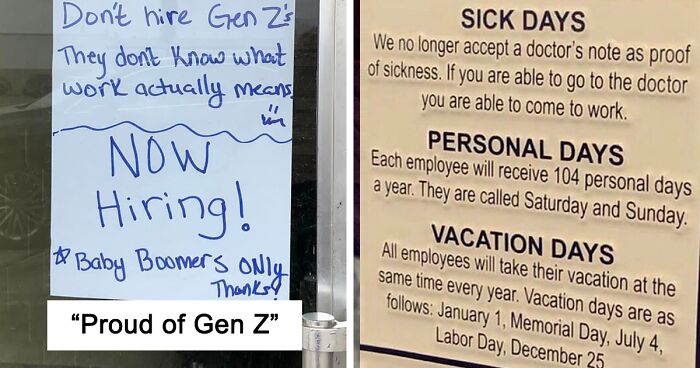 Don't hire Gen Z's
They don't know what
work actually means
NOW
Hiring!
☆ Baby Boomers only
Thanks!
“Proud of Gen Z”
SICK DAYS
We no longer accept a doctor’s note as proof
of sickness. If you are able to go to the doctor
you are able to come to work.
PERSONAL DAYS
Each employee will receive 104 personal days
a year. They are called Saturday and Sunday.
VACATION DAYS
All employees will take their vacation at the
same time every year. Vacation days are as
follows: January 1, Memorial Day, July 4,
Labor Day, December 25